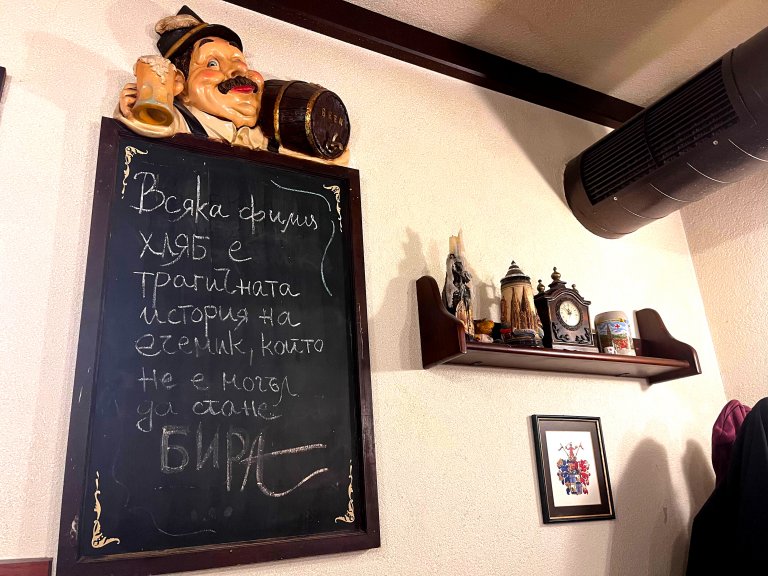 Всяка филия
хляб е
трагичната
история на
ечемик, който
не е могъл
да стане
БИРА